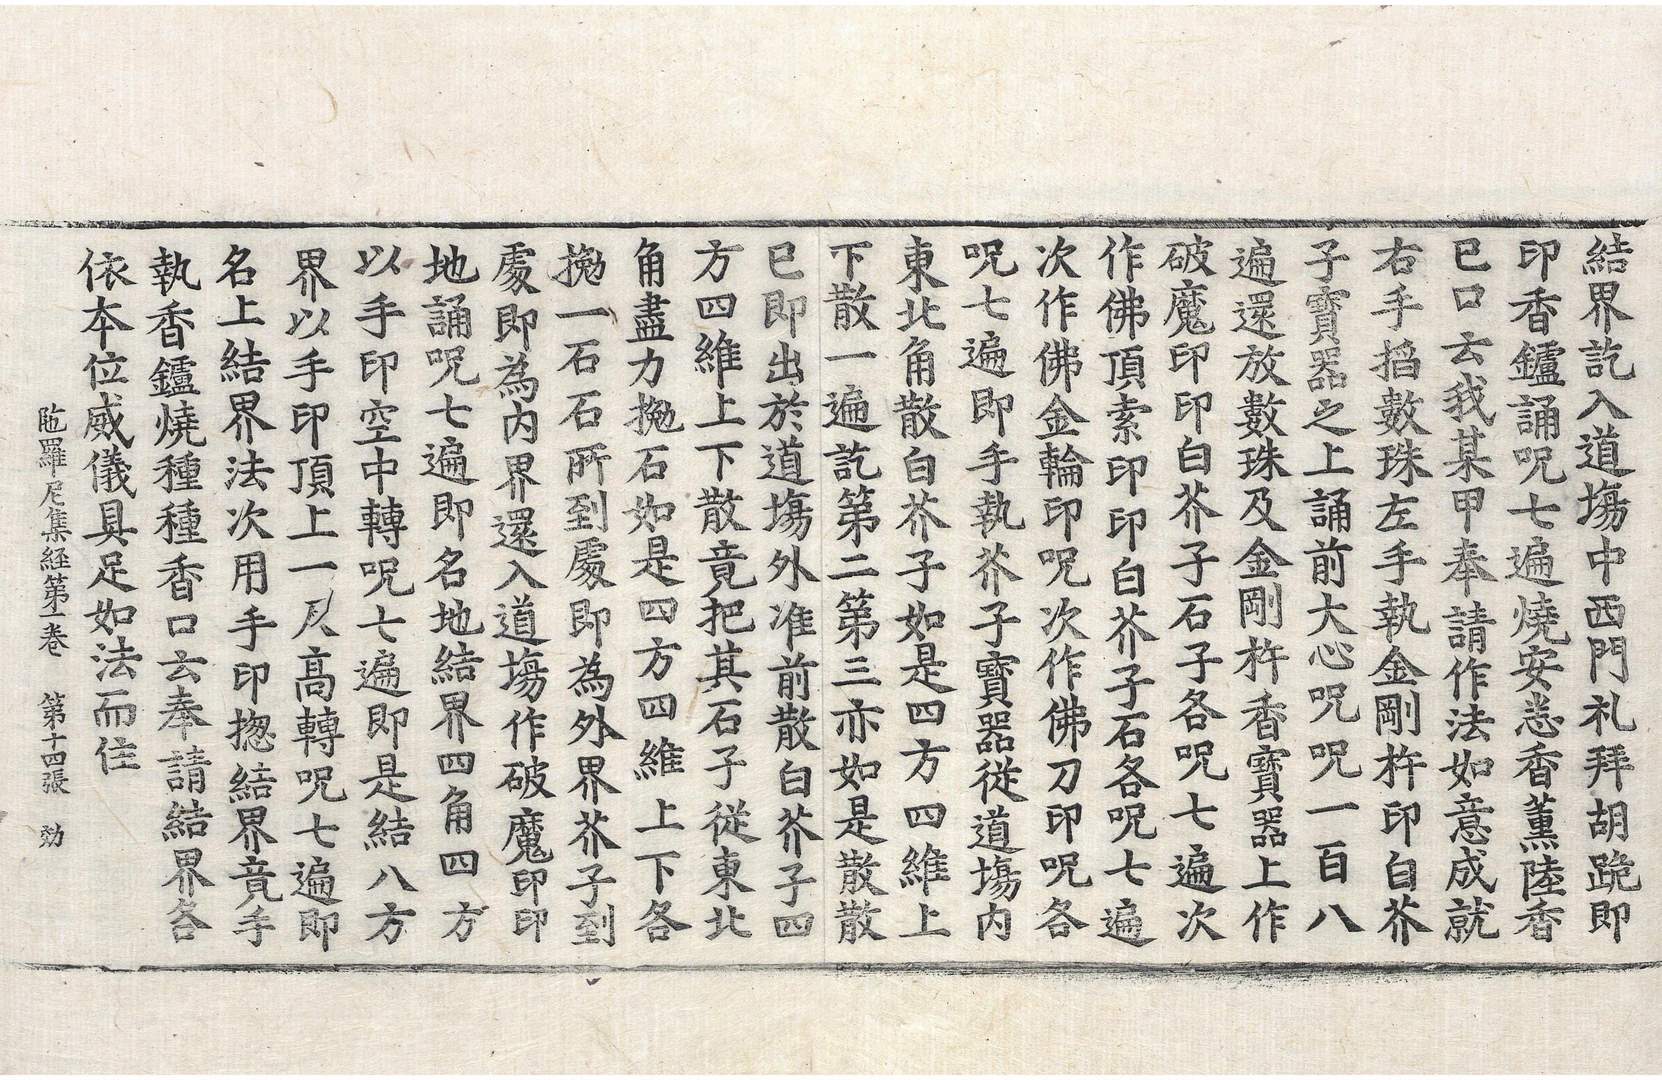 結界訖入道塲中西門礼拜胡跪即
印香鑪誦呪七遍燒安悉香薰陸香
已口云我某甲奉請作法如意成就
右手搯數珠左手執金剛杵印白芥
子寶器之上誦前大心呪呪一百八
遍還放數珠及金剛杵香寶器上作
破魔印印白芥子石子各呪七遍次
作佛頂索印印白芥子石各呪七遍
次作佛金輪印呪次作佛刀印呪各
呪七遍即手執芥子寶器從道塲内
東北角散白芥子如是四方四維上
下散一遍訖第二第三亦如是散散
已即出於道塲外准前散白芥子四
方四維上下散竟把其石子從東北
角盡力拋石如是四方四維上下各
拋一石石所到處即為外界芥子到
處即為内界還入道塲作破魔印印
地誦呪七遍即名地結界四角四方
以手印空中轉呪七遍即是結八方
界以手印頂上一尺高轉呪七遍即
名上結界法次用手印揔結界竟手
執香鑪燒種種香口云奉請結界各
依本位威儀具足如法而住
陁羅尼集経第一卷　第十四張　勀